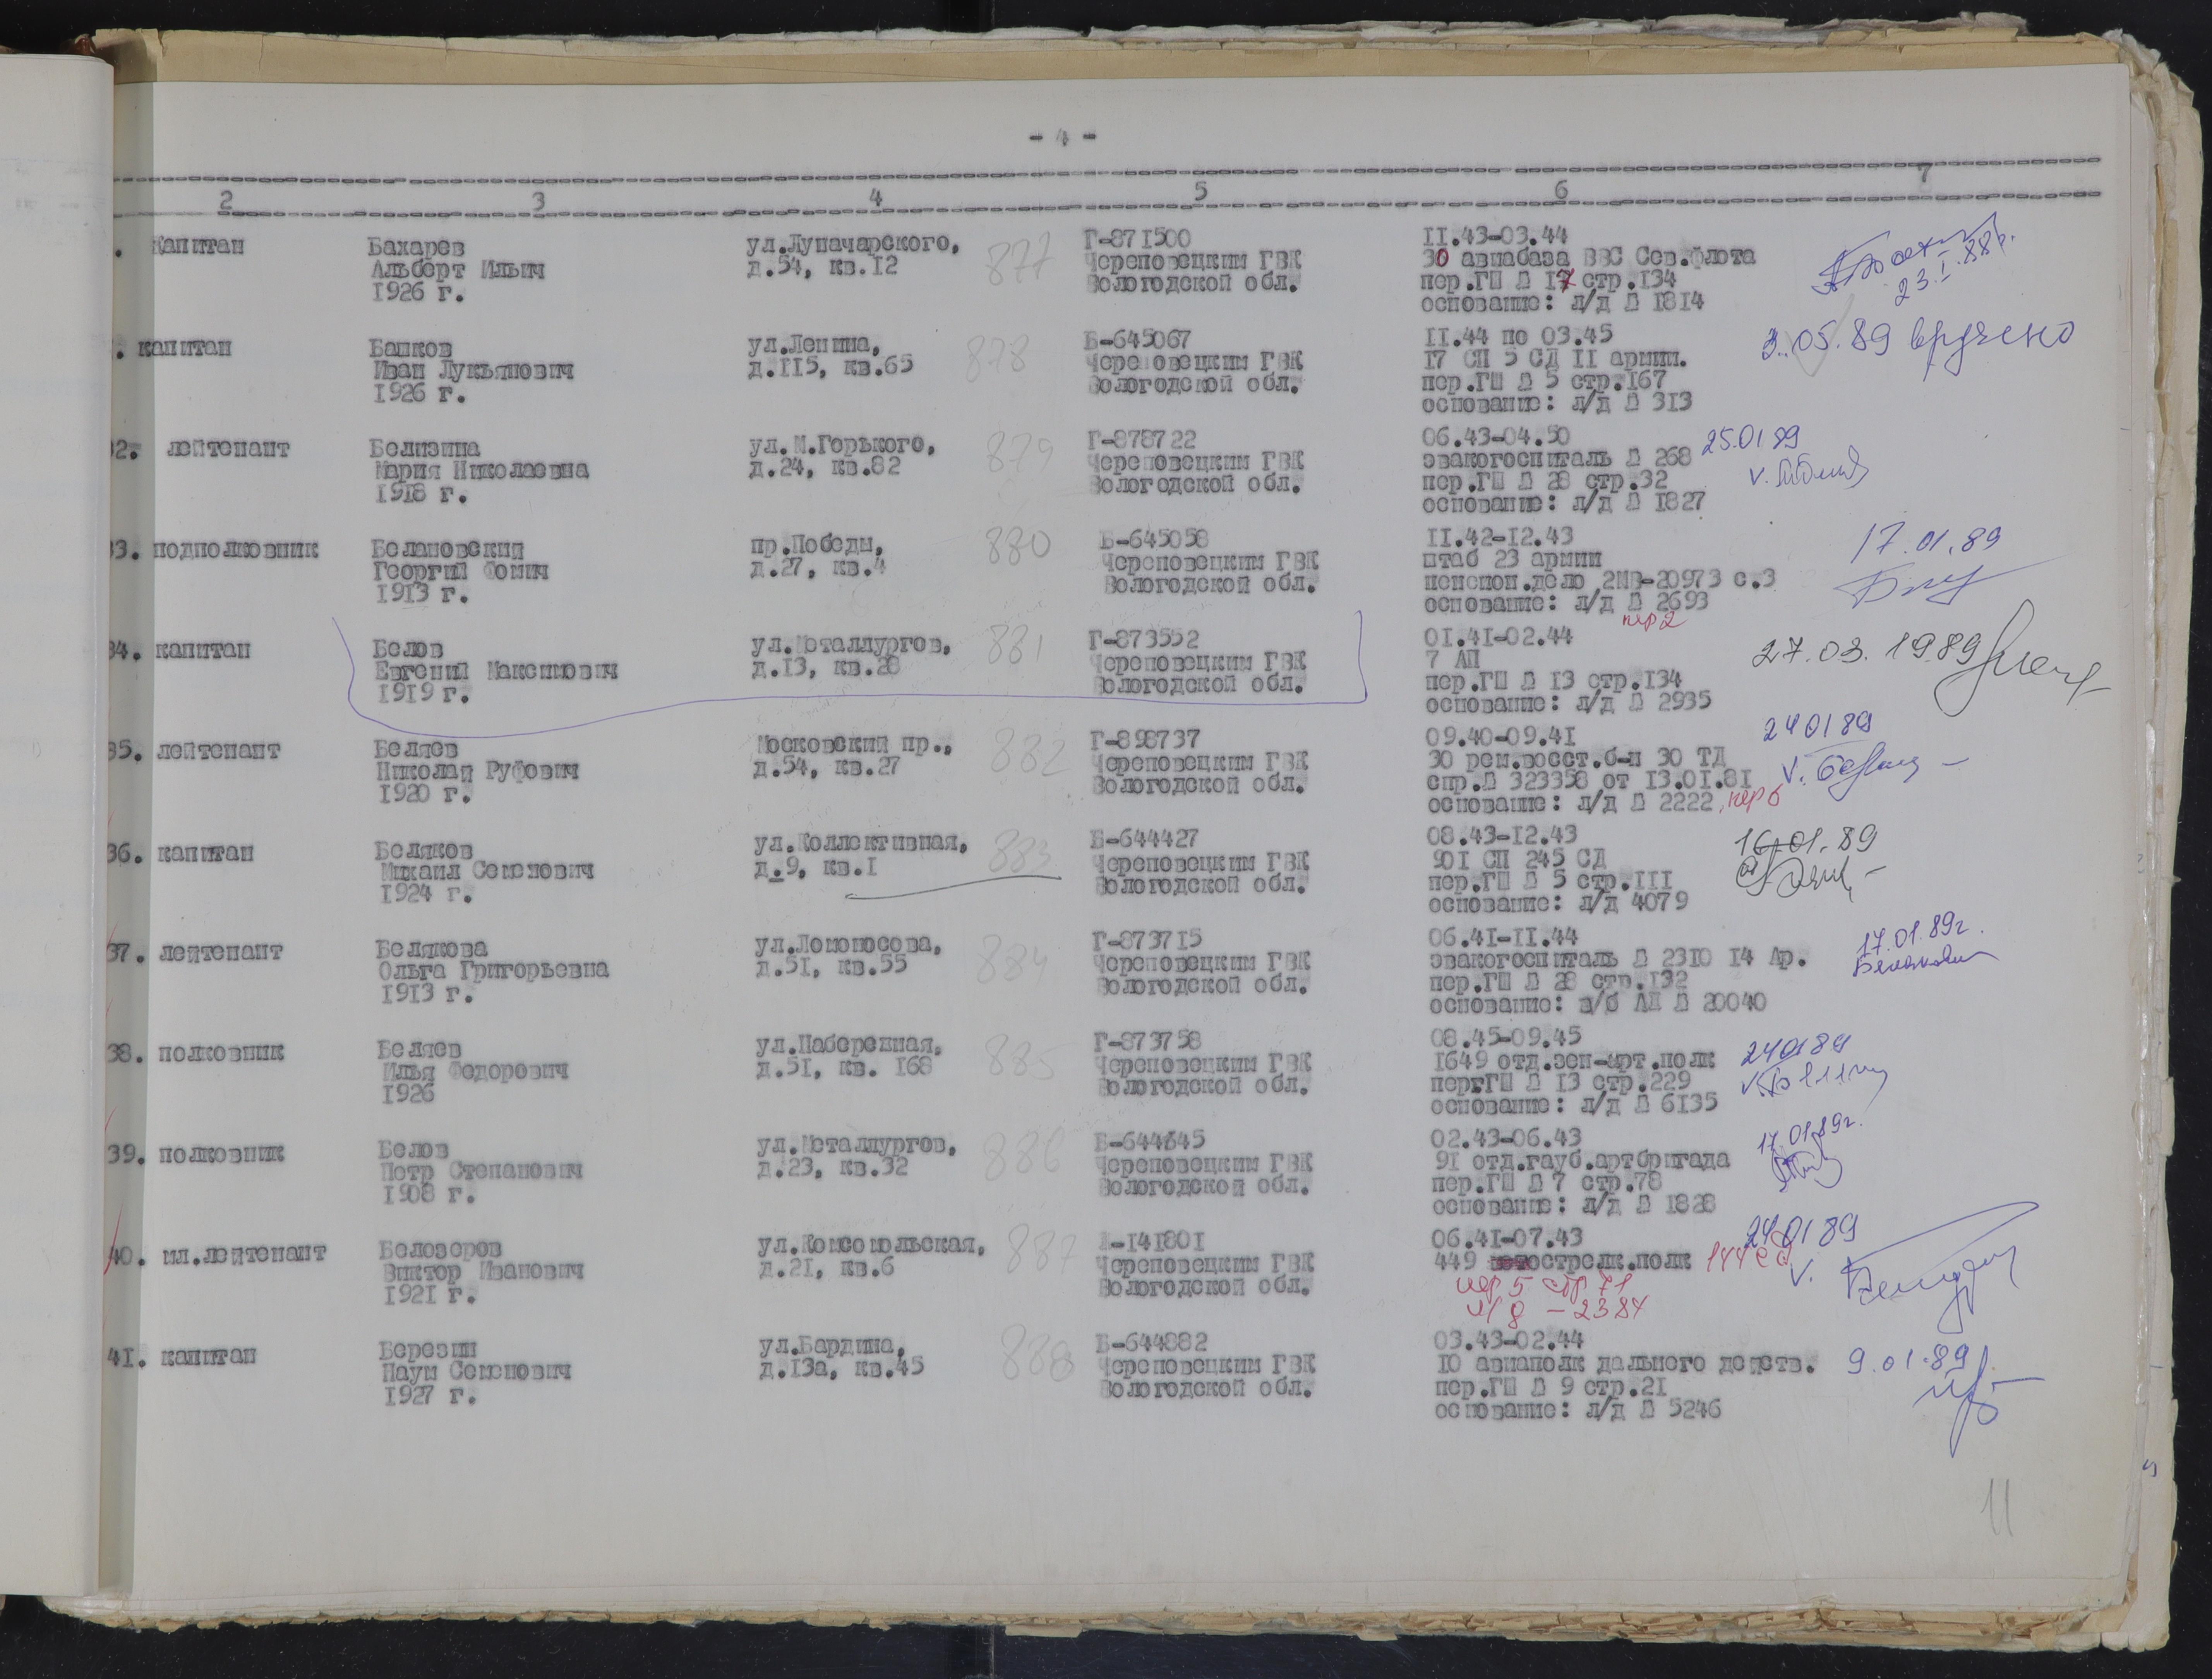 - 4 -
2 3 4 5 6 7
. капитан Бахарев ул.Луначарского, 877 Г-871500 II.43-03.44
Альберт Ильич д.54, кв.I2 Череповецким ГВК 30 авиабаза ВВС Сев.Флота
1926 г. Вологодской обл. пер.ГШ № I7 стр.I34 23.I.88г.
основание: л/д № I8I4
. капитан Башков ул.Ленина, 878 Б-645067 II.44 по 03.45 3.05.89 вручено
Иван Лукьянович д.II5, кв.65 Череповецким ГВК I7 СП 5 СД II армии.
1926 г. Вологодской обл. пер.ГШ № 5 стр.I67
основание: л/д № 3I3
32. лейтенант Белизина ул.М.Горького, 879 Г-878722 06.43-04.50 25.01 89
Мария Николаевна д.24, кв.82 Череповецким ГВК эвакогоспиталь № 268
I9I8 г. Вологодской обл. пер.ГШ № 28 стр.32
основание: л/д № I827
33. подполковник Белановский пр.Победы, 880 Б-645058 II.42-I2.43 17.01.89
Георгий Фомич д.27, кв.4 Череповецким ГВК штаб 23 армии
I9I3 г. Вологодской обл. пенсион.дело 2МВ-20973 с.3
основание: л/д № 2693
пер 2
34. капитан Белов ул.Металлургов, 881 Г-873552 0I.4I-02.44 27.03.1989
Евгений Максимович д.I3, кв.28 Череповецким ГВК 7 АП
I9I9 г. Вологодской обл. пер.ГШ № I3 стр.I34
основание: л/д № 2935
35. лейтенант Беляев Московский пр., 882 Г-898737 09.40-09.4I 24 01 89
Николай Руфович д.54, кв.27 Череповецким ГВК 30 рем.восст.б-н 30 ТД
I920 г. Вологодской обл. спр.№ 323358 от I3.0I.8I
основание: л/д № 2222, пер 6
36. капитан Беляков ул.Коллективная, 883 Б-644427 08.43-I2.43 16.01.89
Михаил Семенович д.9, кв.I Череповецким ГВК 90I СП 245 СД
I924 г. Вологодской обл. пер.ГШ № 5 стр.III
основание: л/д 4079
37. лейтенант Белякова ул.Ломоносова, 884 Г-8737I5 06.4I-II.44 17.01.89г.
Ольга Григорьевна д.5I, кв.55 Череповецким ГВК эвакогоспиталь № 23I0 I4 Ар.
I9I3 г. Вологодской обл. пер.ГШ № 28 стр.I32
основание: в/б АП № 20040
38. полковник Беляев ул.Набережная, 885 Г-873758 08.45-09.45 24 01 89
Илья Федорович д.5I, кв. I68 Череповецким ГВК I649 отд.зен-арт.полк
I926 Вологодской обл. пер.ГШ № I3 стр.229
основание: л/д № 6I35
39. полковник Белов ул.Металлургов, 886 Б-644645 02.43-06.43 17.01.89г.
Петр Степанович д.23, кв.32 Череповецким ГВК 9I отд.гауб.артбригада
I908 г. Вологодской обл. пер.ГШ № 7 стр.78
основание: л/д № I828
40. мл.лейтенант Белозеров ул.Комсомольская, 887 -I4I80I 06.4I-07.43 24 01 89
Виктор Иванович д.2I, кв.6 Череповецким ГВК 449 стрелк.полк 144 сд
I92I г. Вологодской обл. пер 5 стр 71
л/д - 2384
4I. капитан Березин ул.Бардина, 888 Б-644882 03.43-02.44 9.01.89
Наум Семенович д.I3а, кв.45 Череповецким ГВК I0 авиаполк дального действ.
I927 г. Вологодской обл. пер.ГШ № 9 стр.2I
основание: л/д № 5246
11